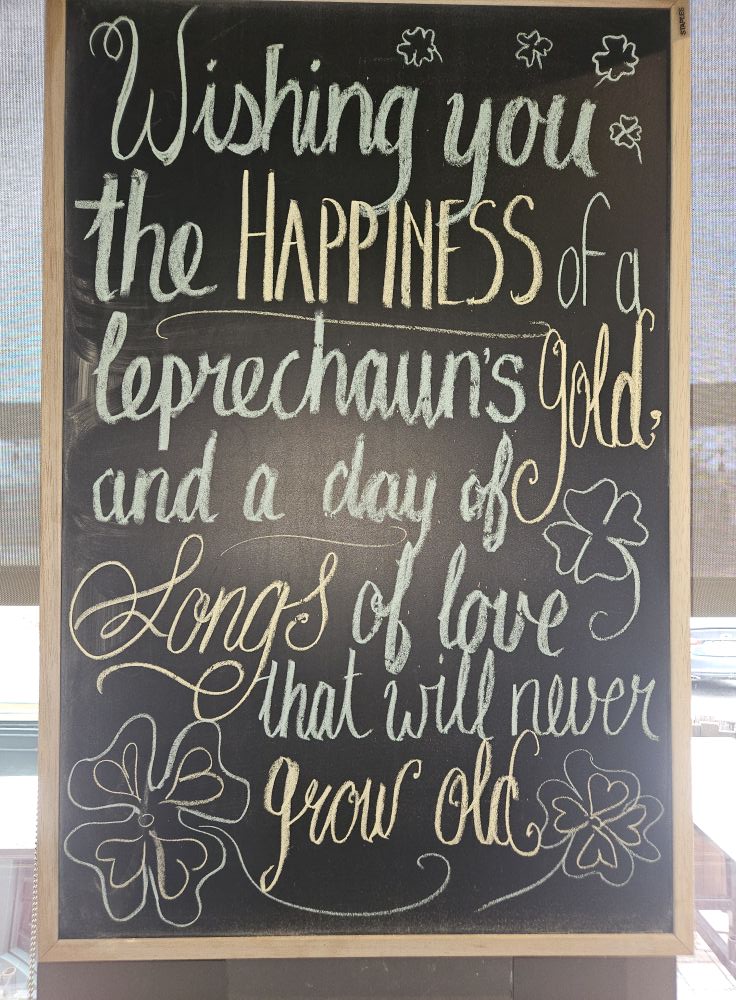 STAPLES
Wishing you
the HAPPINESS of a
leprechaun's gold,
and a day of
Songs of love
that will never
grow old